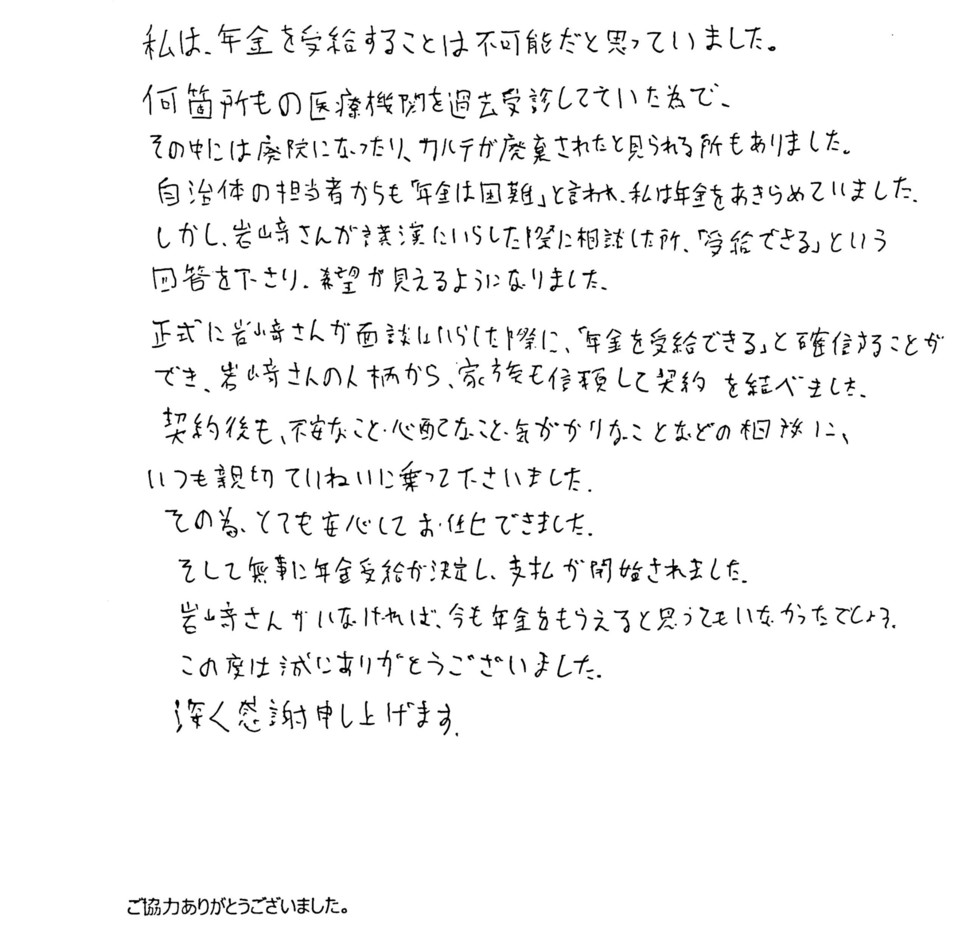 私は、年金を受給することは不可能だと思っていました。
何箇所もの医療機関を過去受診してていた為で、
その中には廃院になったり、カルテが廃棄されたと見られる所もありました。
自治体の担当者からも「年金は困難」と言われ、私は年金をあきらめていました。
しかし、岩﨑さんが講演にいらした際に相談した所、「受給できる」という
回答を下さり、希望が見えるようになりました。
正式に岩﨑さんが面談にいらした際に、「年金を受給できる」と確信することが
でき、岩﨑さんの人柄から、家族も信頼して契約を結べました。
契約後も、不安なこと・心配なこと・気がかりなことなどの相談に、
いつも親切ていねいに乗って下さいました。
その為、とても安心してお任せできました。
そして無事に年金受給が決定し、支払が開始されました。
岩﨑さんがいなければ、今も年金をもらえると思ってもいなかったでしょう。
この度は誠にありがとうございました。
深く感謝申し上げます。
ご協力ありがとうございました。